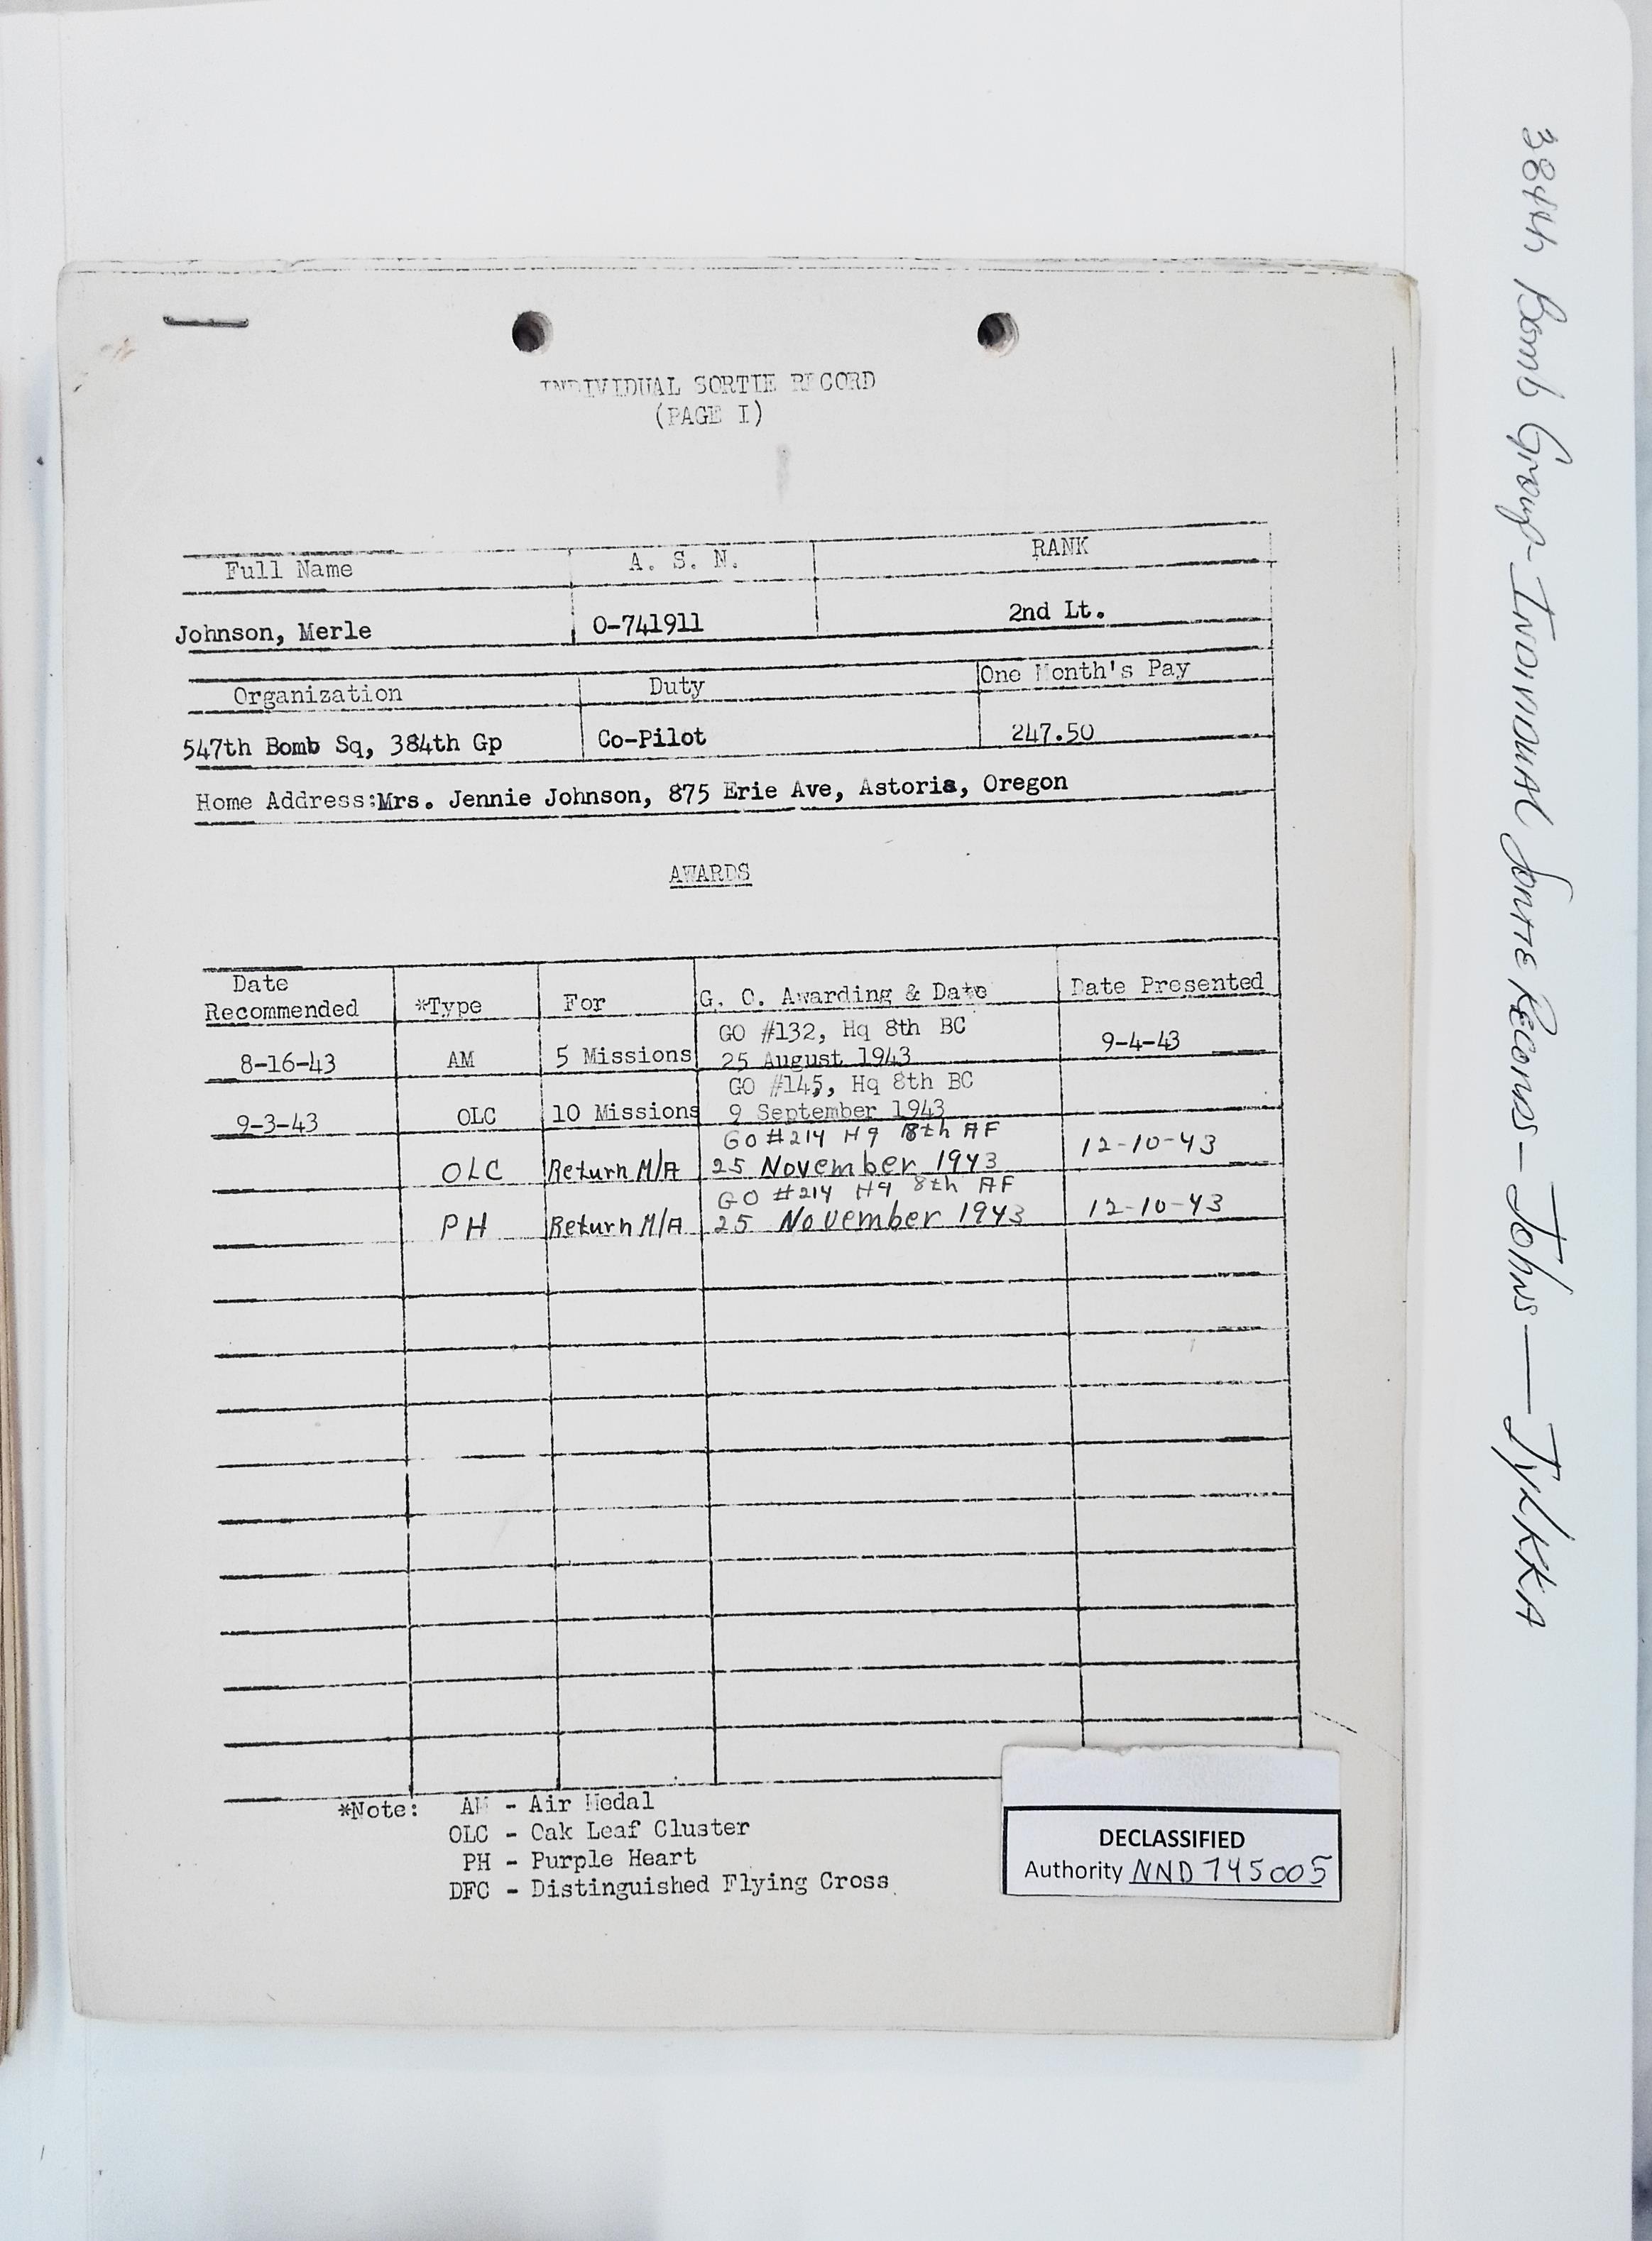 INDIVIDUAL SORTIE RECORD
(PAGE I)
Full Name A. S. N. RANK
Johnson, Merle O-741911 2nd Lt.
Organization Duty One Month's Pay
547th Bomb Sq, 384th Gp Co-Pilot 247.50
Home Address:Mrs. Jennie Johnson, 875 Erie Ave, Astoria, Oregon
AWARDS
Date
Recommended *Type For G. O. Awarding & Date Date Presented
GO #132, Hq 8th BC
8-16-43 AM 5 Missions 25 August 1943 9-4-43
GO #145, Hq 8th BC
9-3-43 OLC 10 Missions 9 September 1943
GO #214 Hq 8th AF
OLC Return M/A 25 November 1943 12-10-43
GO #214 Hq 8th AF
PH Return M/A 25 November 1943 12-10-43
*Note: AM - Air Medal
OLC - Oak Leaf Cluster
PH - Purple Heart
DFC - Distinguished Flying Cross
DECLASSIFIED
Authority NND 745005
384th Bomb Group - INDIVIDUAL Sortie Records - Johns - Jylkka